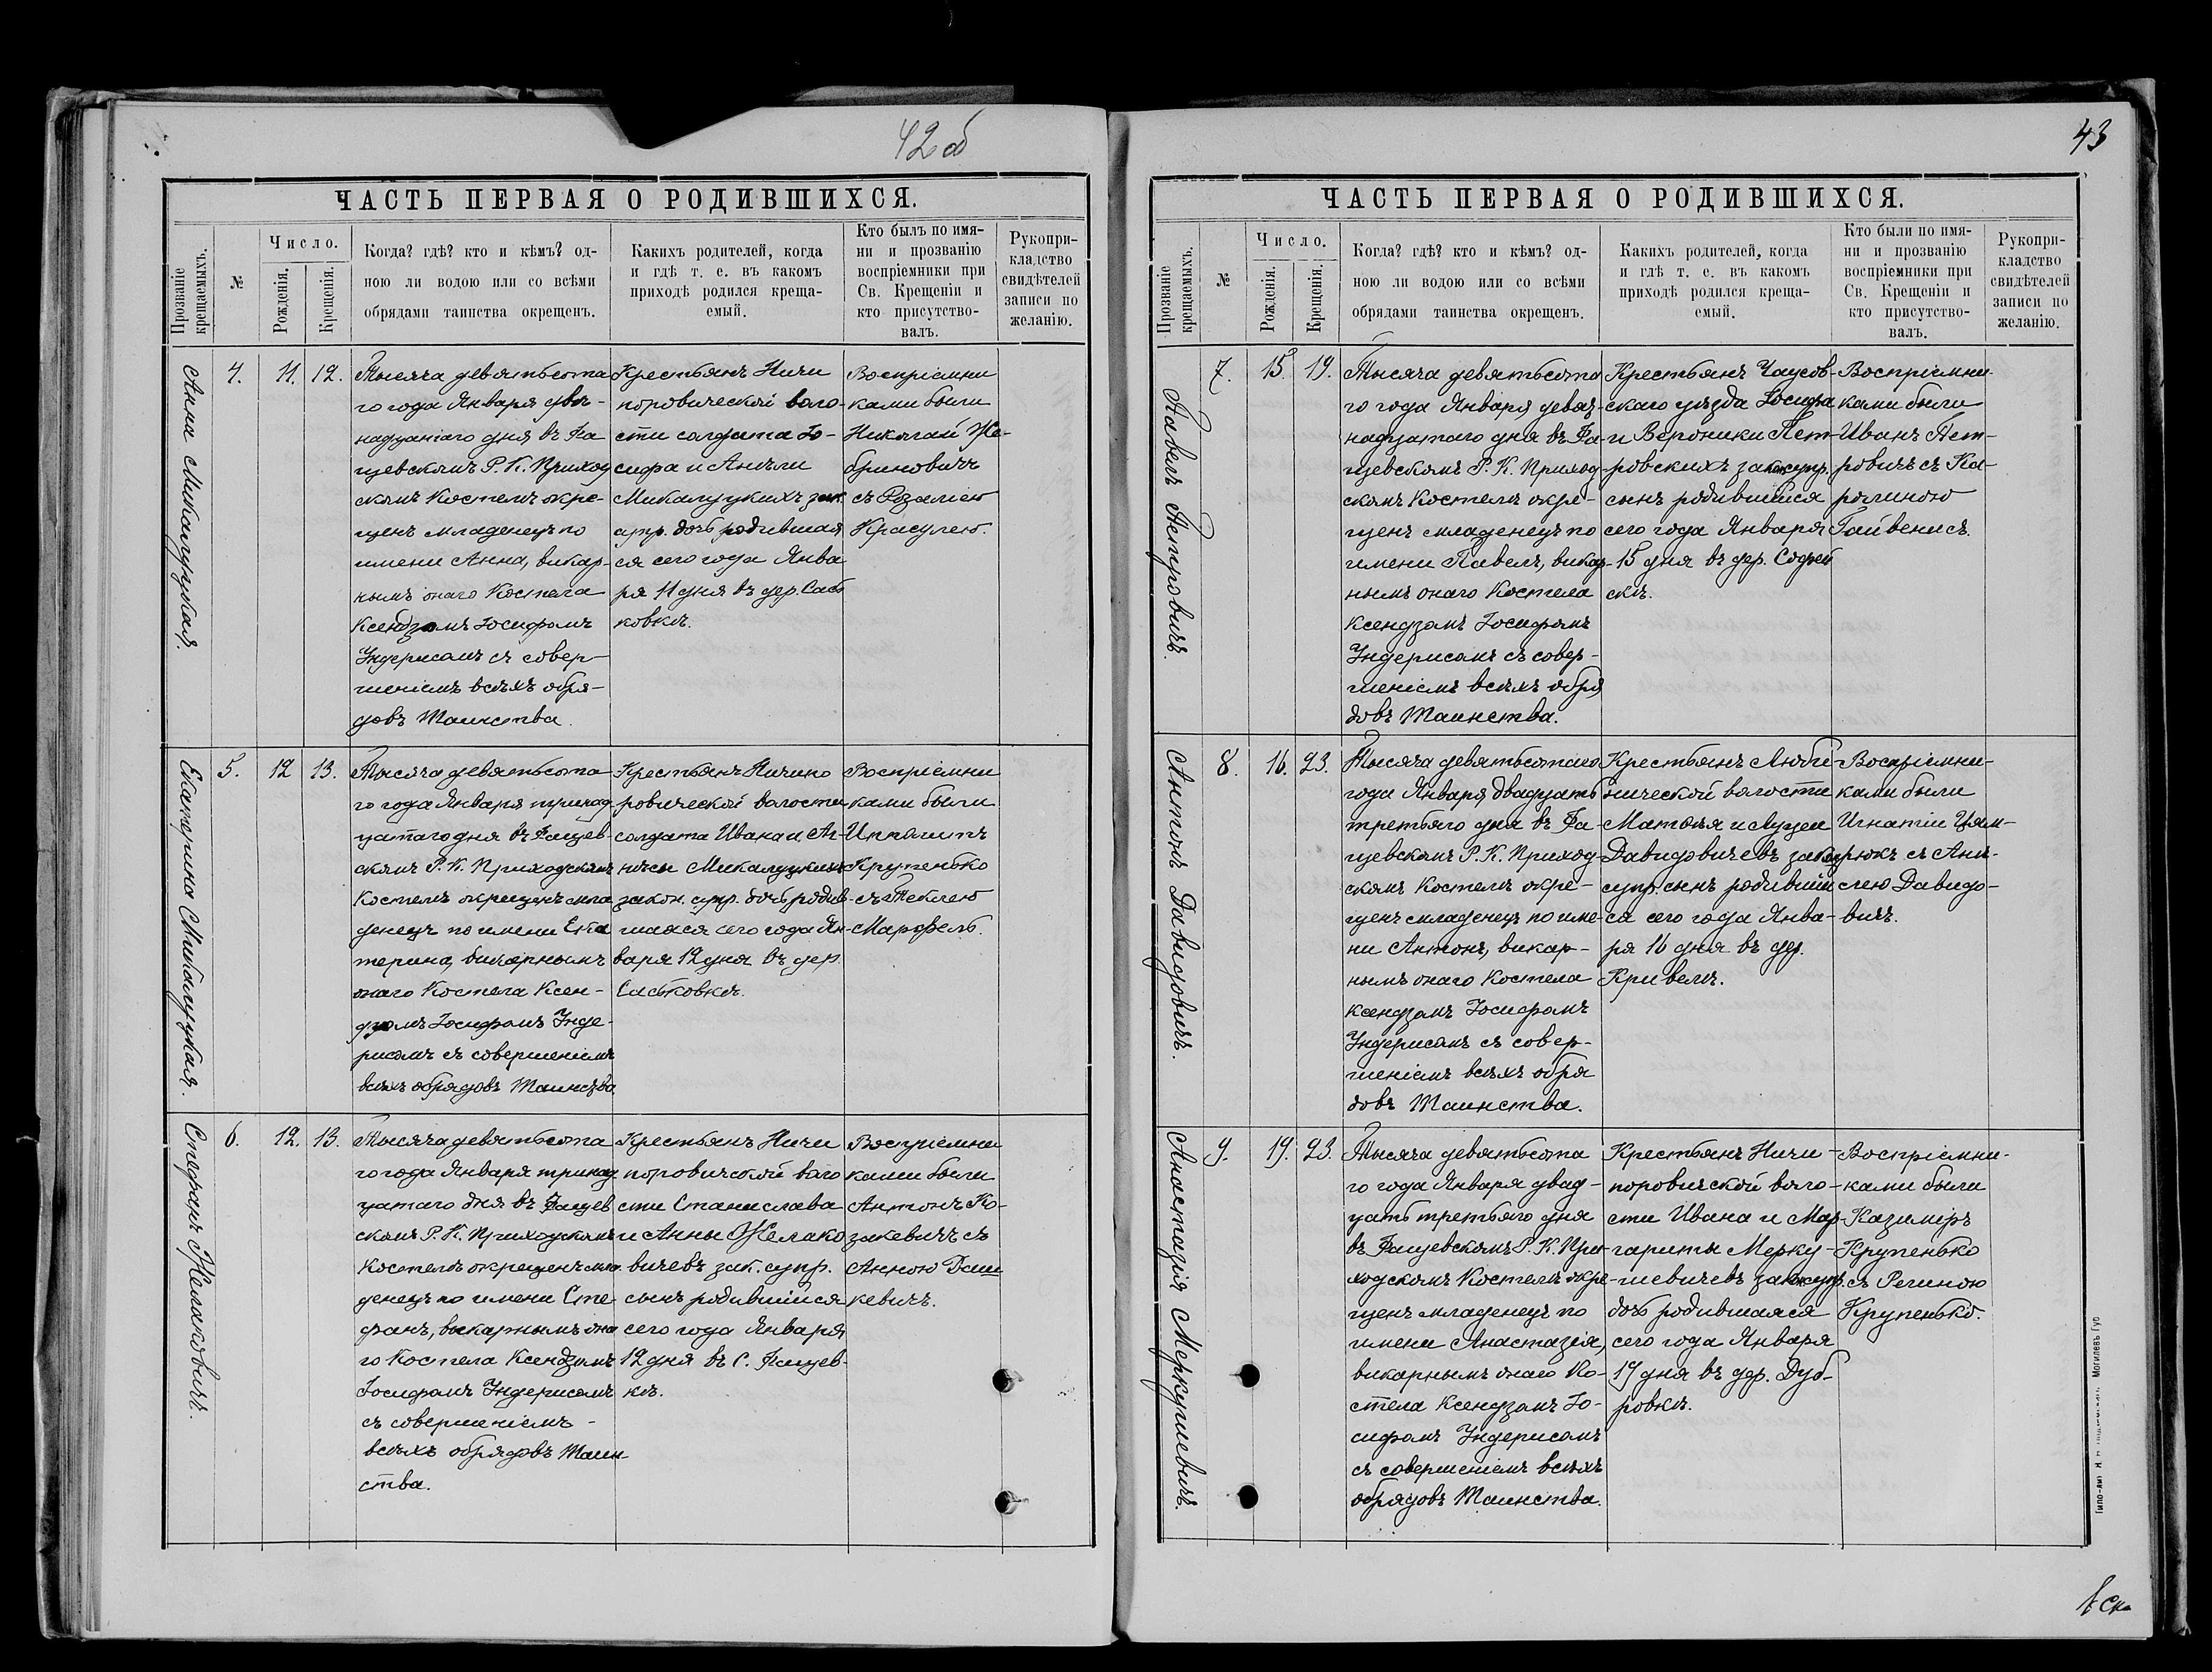 42 об
ЧАСТЬ ПЕРВАЯ О РОДИВШИХСЯ.
Прозваніе крещаемыхъ.
№
Число.
Рожденія.
Крещенія.
Когда? гдѣ? кто и кѣмъ? од-
ною ли водою или со всѣми
обрядами таинства окрещенъ.
Какихъ родителей, когда
и гдѣ т. е. въ какомъ
приходѣ родился креща-
емый.
Кто былъ по имя-
ни и прозванію
воспріемники при
Св. Крещеніи и
кто присутство-
валъ.
Рукопри-
кладство
свидѣтелей
записи по
желанію.
Анна Микалуцкая.
4.
11.
12.
Тысяча девятьсота
го года Января два-
надцатаго дня въ Фа
щевскомъ Р. К. Приход
скомъ Костелѣ окре-
щенъ младенецъ по
имени Анна, викар-
нымъ онаго Костела
Ксендзомъ Іосифомъ
Индерисомъ съ совер-
шеніемъ всѣхъ обря-
довъ Таинства.
Крестьянъ Ничи
поровической воло-
сти солдата Іо-
сифа и Анели
Микалуцкихъ зак.
супр. дочь родившая
ся сего года Янва
ря 11 дня въ дер. Сась
ковкѣ.
Воспріемни
ками были
Николай Же-
бриновичъ
съ Розаліею
Красулею.
Екатерина Микалуцкая.
5.
12
13.
Тысяча девятьсота
го года Января тринад
цатаго дня въ Фащев-
скомъ Р. К. Приходскомъ
Костелѣ окрещенъ мла
денецъ по имени Ека
терина, викарнымъ
онаго Костела Ксен-
дзомъ Іосифомъ Инде-
рисомъ съ совершеніемъ
всѣхъ обрядовъ Таинства
Крестьянъ Ничипо
ровической волости
солдата Ивана и Аг-
нѣсы Микалуцкихъ
закон. супр. дочь родив-
шаяся сего года Ян-
варя 12 дня въ дер.
Саськовкѣ.
Воспріемни
ками были
Ипполитъ
Крупенько
съ Теклею
Марфель.
Стефанъ Желаковичъ.
6.
12.
13.
Тысяча девятьсота
го года Января тринад
цатаго дня въ Фащев
скомъ Р. К. Приходскомъ
Костелѣ окрещенъ мла
денецъ по имени Сте-
фанъ, викарнымъ она
го Костела Ксендзомъ
Іосифомъ Индерисомъ
съ совершеніемъ -
всѣхъ обрядовъ Таин-
ства.
Крестьянъ Ничи
поровической воло
сти Станислава
и Анны Желако
вичевъ зак. супр.
сынъ родившійся
сего года Января
12 дня въ С. Фащев-
кѣ.
Воспріемни
ками были
Антонъ Ко-
закевичъ съ
Анною Даш
кевичъ.
43
ЧАСТЬ ПЕРВАЯ О РОДИВШИХСЯ.
Прозваніе крещаемыхъ.
№
Число.
Рожденія.
Крещенія.
Когда? гдѣ? кто и кѣмъ? од-
ною ли водою или со всѣми
обрядами таинства окрещенъ.
Какихъ родителей, когда
и гдѣ т. е. въ какомъ
приходѣ родился креща-
емый.
Кто были по имя-
ни и прозванію
воспріемники при
Св. Крещеніи и
кто присутство-
валъ.
Рукопри-
кладство
свидѣтелей
записи по
желанію.
Павелъ Петровичъ.
7.
15.
19.
Тысяча девятьсота
го года Января девят-
надцатаго дня въ Фа-
щевскомъ Р. К. Приход-
скомъ Костелѣ окре-
щенъ младенецъ по
имени Павелъ, викар-
нымъ онаго Костела
Ксендзомъ Іосифомъ
Индерисомъ съ совер-
шеніемъ всѣхъ обря
довъ Таинства.
Крестьянъ Чаусов-
скаго уѣзда Іосифа
и Вероники Пет-
ровскихъ закон. супр.
сынъ родившійся
сего года Января
15 дня въ дер. Софей
скѣ.
Воспріемни-
ками были
Иванъ Пет-
ровичъ съ Ка-
ролиною
Гайвенисъ.
Антонъ Давидовичъ.
8.
16.
23.
Тысяча девятьсотаго
года Января двадцать
третьяго дня въ Фа-
щевскомъ Р. К. Приход-
скомъ Костелѣ окре-
щенъ младенецъ по име-
ни Антонъ, викар-
нымъ онаго Костела
Ксендзомъ Іосифомъ
Индерисомъ съ совер-
шеніемъ всѣхъ обря
довъ Таинства.
Крестьянъ Люби-
нической волости
Матвѣя и Луцеи
Давидовичевъ закон.
супр. сынъ родивший
ся сего года Янва-
ря 16 дня въ дер.
Кривелѣ.
Воспріемни-
ками были
Игнатій Цям-
рюкъ съ Ане-
слею Давидо-
вичъ.
Анастазія Меркушевичъ.
9.
19.
23.
Тысяча девятьсота
го года Января двад-
цать третьяго дня
въ Фащевскомъ Р. К. При-
ходскомъ Костелѣ окре-
щенъ младенецъ по
имени Анастазія,
викарнымъ онаго Ко-
стела Ксендзомъ Іо-
сифомъ Индерисомъ
съ совершеніемъ всѣхъ
обрядовъ Таинства.
Крестьянъ Ничи-
поровической воло-
сти Ивана и Мар-
гариты Мерку-
шевичевъ закон. супр.
дочь родившаяся
сего года Января
19 дня въ дер. Дуб-
ровкѣ.
Воспріемни-
ками были
Казиміръ
Крупенько
съ Региною
Крупенько.
Могилевъ Губ